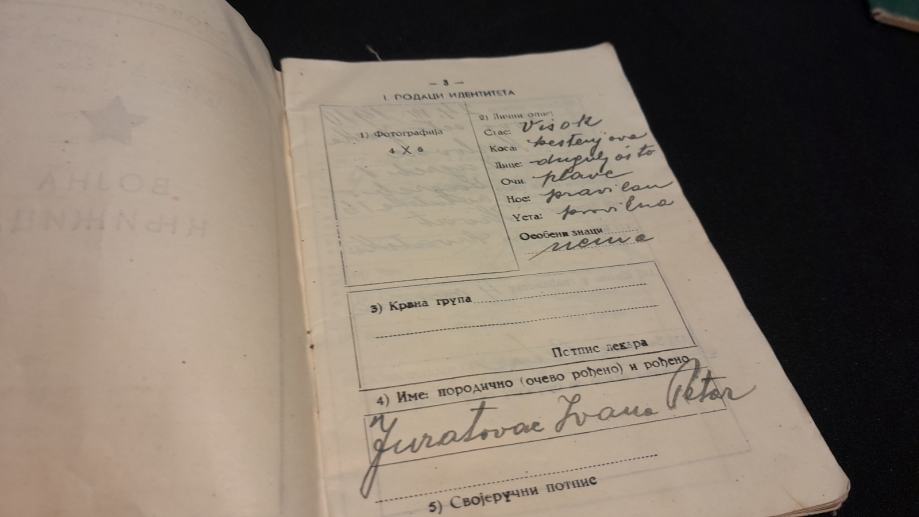 ВОЈНА
КЊИЖИЦ
— 3 —
I. ПОДАЦИ ИДЕНТИТЕТА
1) Фотографија
4 X 6
2) Лични опис:
Стас: Visok
Коса: kestenjova
Лице: duguljasto
Очи: plave
Нос: pravilan
Уста: pravilna
Особени знаци
nema
3) Крвна група
Потпис лекара
4) Име: породично (очево рођено) и рођено
Juratovac Ivana Petar
5) Својеручни потпис